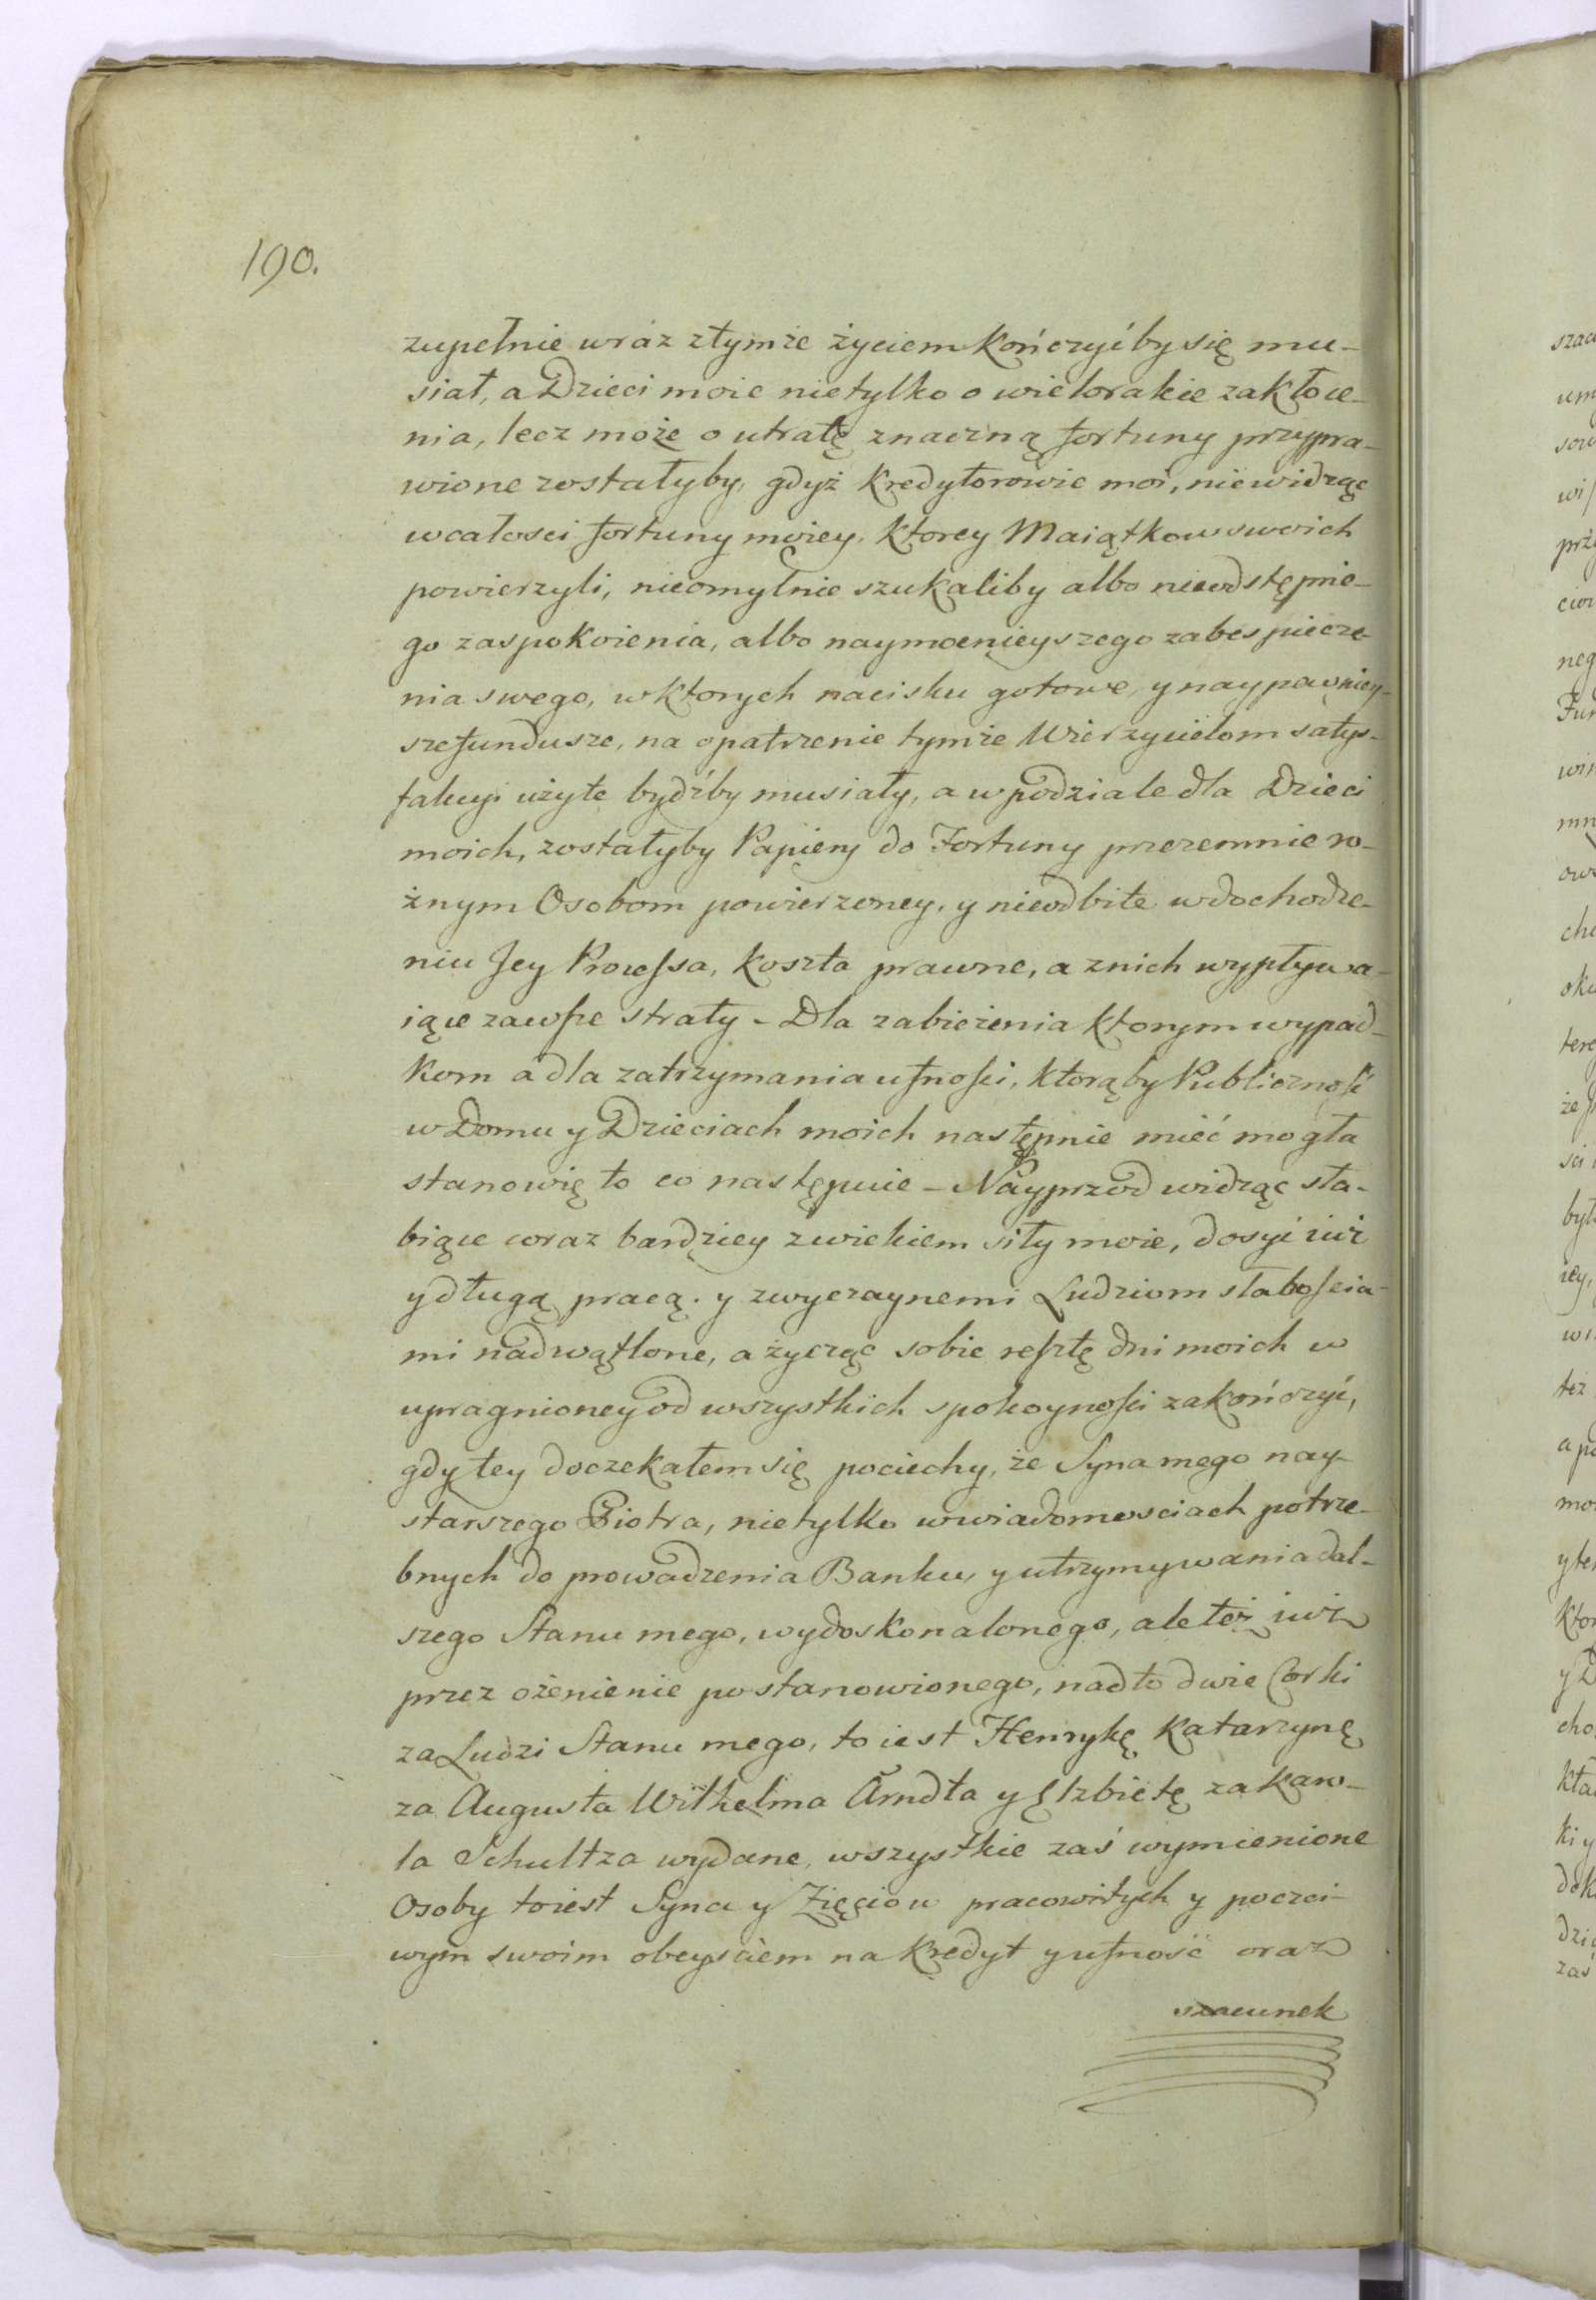 190.
zupełnie wraz ztymże życiem kończyćby się mu-
siał, a Dzieci moie nietylko o wielorakie zakłoce-
nia, lecz może o utratę znaczną fortuny przypra-
wione zostałyby, gdyż Kredytorowie moi, niewidząc
wcałosci fortuny moiey, ktorey Maiątkow swoich
powierzyli, nieomylnie szukaliby albo nieodstępne-
go zaspokoienia, albo naymocnieyszego zabespiecze-
nia swego, wktorych nacisku gotowe, y naypewniey-
sze fundusze, na opatrzenie tymże Wierzycielom satys-
fakcyi użyte bydźby musiały, a w podziale dla Dzieci
moich, zostałyby Papiery do Fortuny przezemnie ro-
żnym Osobom powierzoney, y nieodbite wdochodze-
niu Jey Processa, koszta prawne, a znich wypływa-
iące zawsze straty – Dla zabieżenia ktorym wypad-
kom a dla zatrzymania ufności, ktorąby Publiczność
w Domu y Dzieciach moich następnie mieć mogła
stanowię to co następuie – Nayprzod widząc sła-
biące coraz bardziey zwiekiem siły moie, dosyć iuż
y długą pracą y zwyczaynemi Ludziom słabościa-
mi nadwątlone, a życząc sobie resztę dni moich w
upragnioney od wszystkich spokoyności zakończyć,
gdy tey doczekałem się pociechy, że Syna mego nay-
starszego Piotra, nietylko wwiadomosciach potrze-
bnych do prowadzenia Banku y utrzymywania dal-
szego Stanu mego, wydoskonalonego, ale też iuż
przez ożenienie postanowionego, nadto dwie Corki
za Ludzi Stanu mego, to iest Henrykę Katarzynę
za Augusta Wilhelma Arndta y Elzbietę za Karo-
la Schultza wydane, wszystkie zaś wymienione
Osoby toiest Syna y Zięciow pracowitych y poczci-
wym swoim obeysciem na kredyt y ufność oraz
szacunek